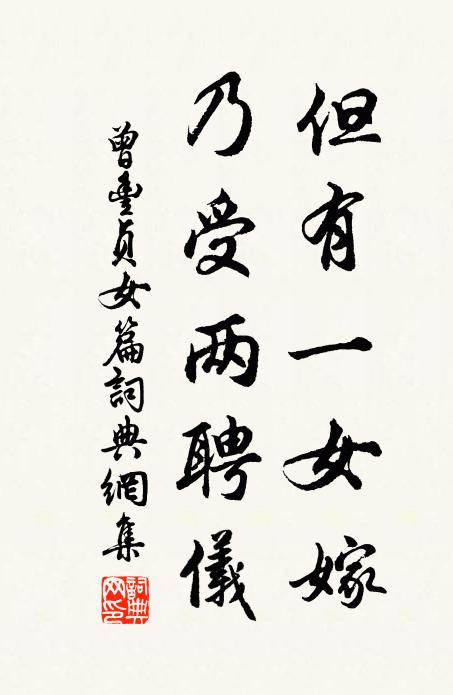 但有一女嫁
乃受两聘儀
曾豊貞女篇詞典網集
詞典網印